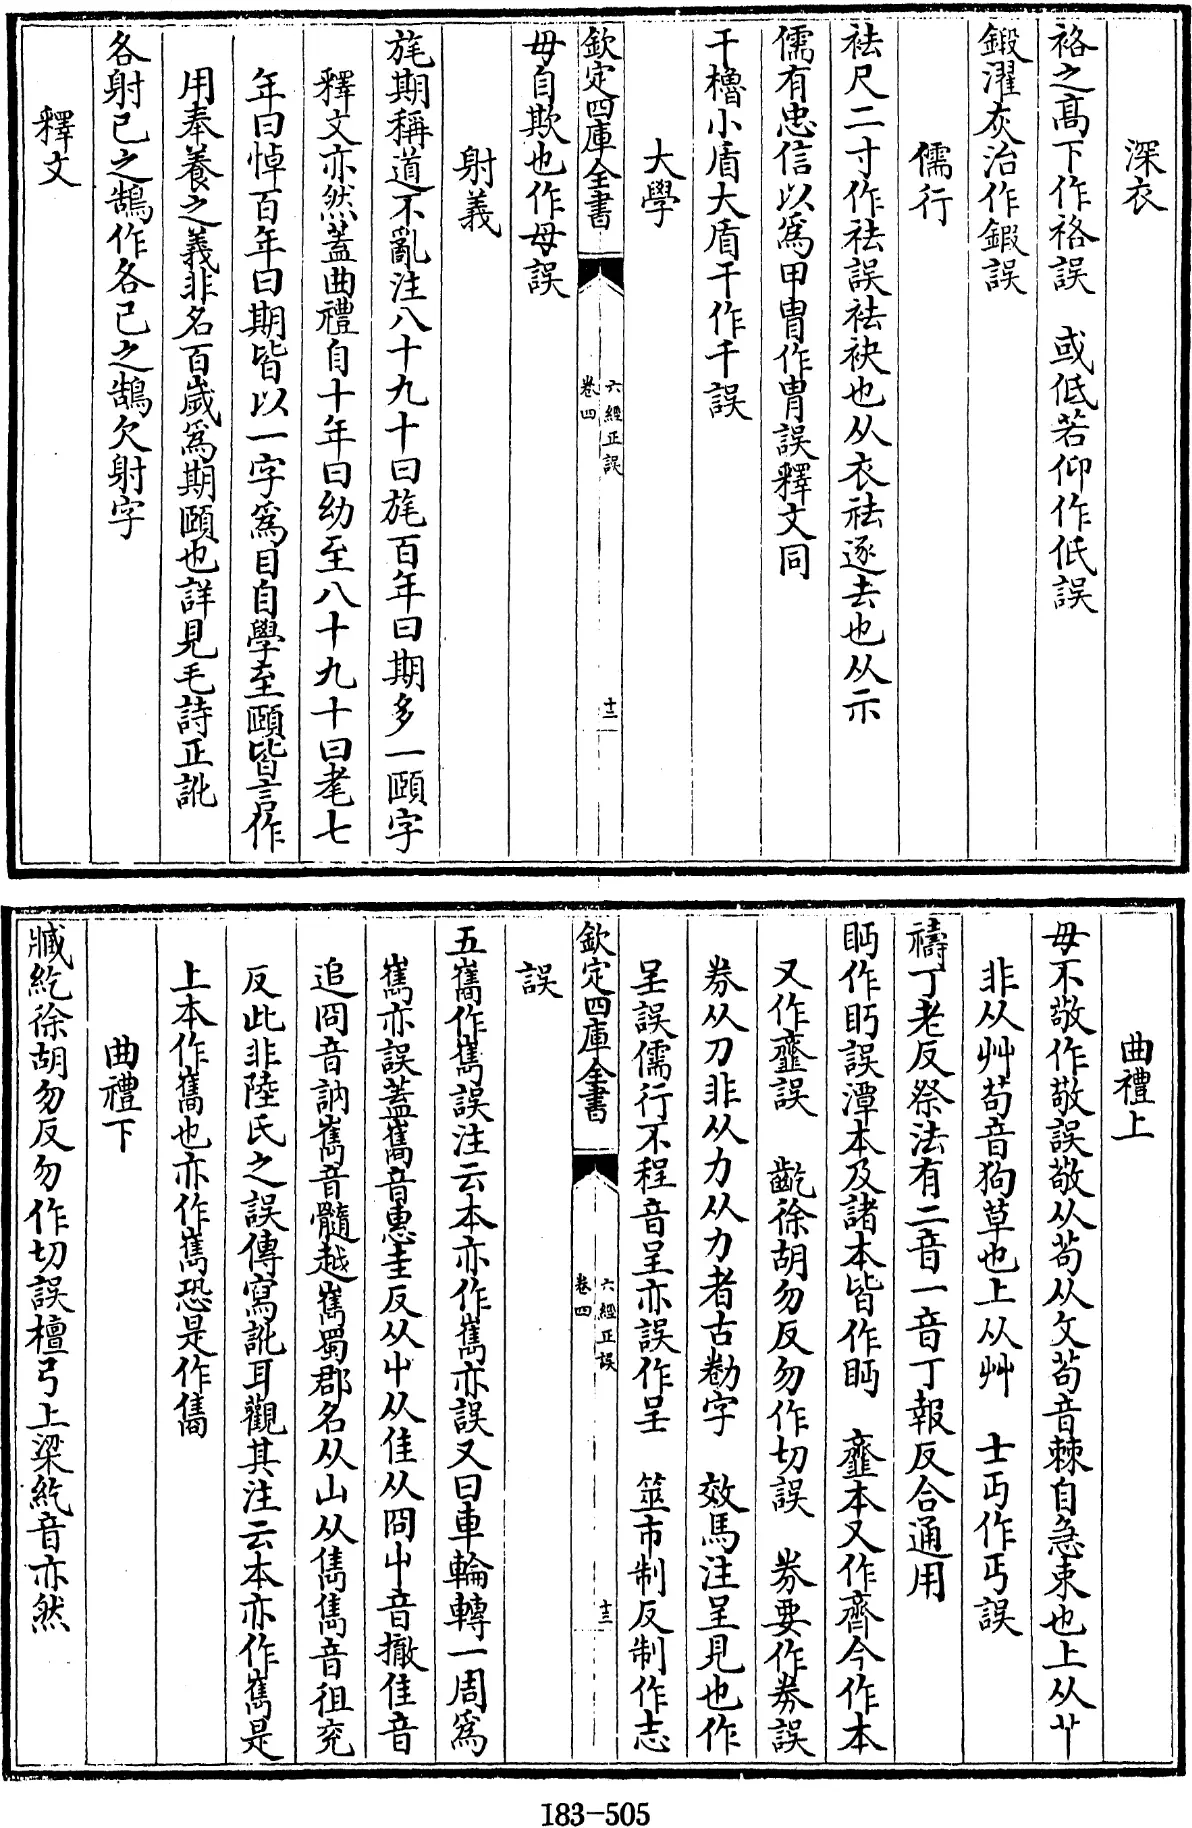 深衣
袼之高下作袼誤　或低若仰作低誤
鍛濯灰治作鍜誤
儒行
袪尺二寸作祛誤袪袂也从衣祛逐去也从示
儒有忠信以為甲冑作胄誤釋文同
干櫓小盾大盾干作千誤
大學
欽定四庫全書
六經正誤
卷四
十二
毋自欺也作母誤
射義
旄期稱道不亂注八十九十曰旄百年曰期多一頤字
釋文亦然蓋曲禮自十年曰幼至八十九十曰耄七
年曰悼百年曰期皆以一字為目自學至頤皆言作
用奉養之義非名百歲為期頤也詳見毛詩正訛
各射已之鵠作各已之鵠欠射字
釋文
曲禮上
毋不敬作敬誤敬从茍从攵茍音棘自急束也上从卝
非从艸苟音狗草也上从艸　士丏作丐誤
禱丁老反祭法有二音一音丁報反合通用
眄作盻誤潭本及諸本皆作眄　齏本又作齊今作本
又作虀誤　齕徐胡勿反勿作切誤　券要作劵誤
券从刀非从力从力者古勌字　效馬注呈見也作
呈誤儒行不程音呈亦誤作呈　筮市制反制作志
欽定四庫全書
六經正誤
卷四
十三
誤
五巂作雋誤注云本亦作嶲亦誤又曰車輪轉一周為
嶲亦誤蓋巂音惠圭反从屮从隹从冏屮音撤隹音
追冏音訥嶲音髓越嶲蜀郡名从山从雋雋音徂兖
反此非陸氏之誤傳寫訛耳觀其注云本亦作嶲是
上本作巂也亦作嶲恐是作雋
曲禮下
臧紇徐胡勿反勿作切誤檀弓上梁紇音亦然
183-505